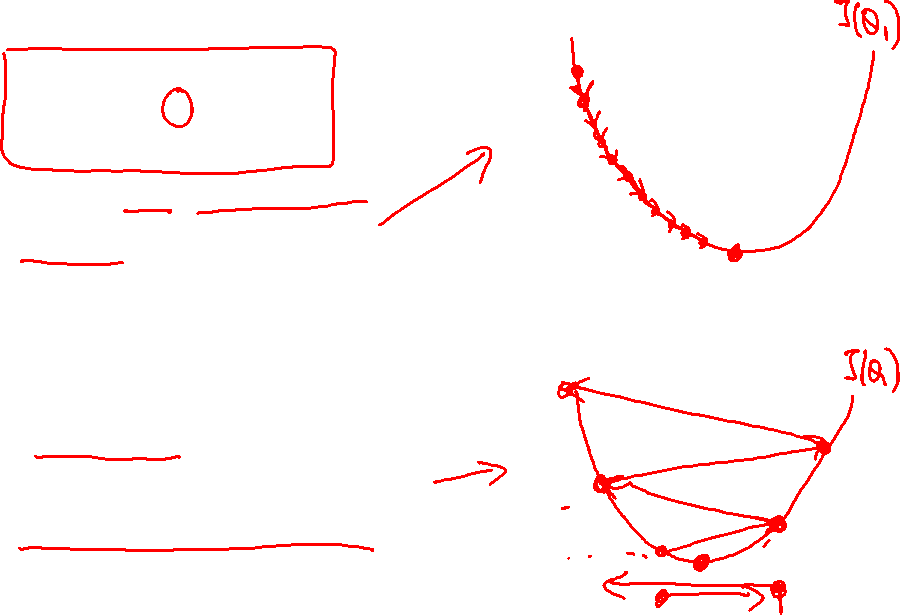 J(θ₁)
J(θ₁)